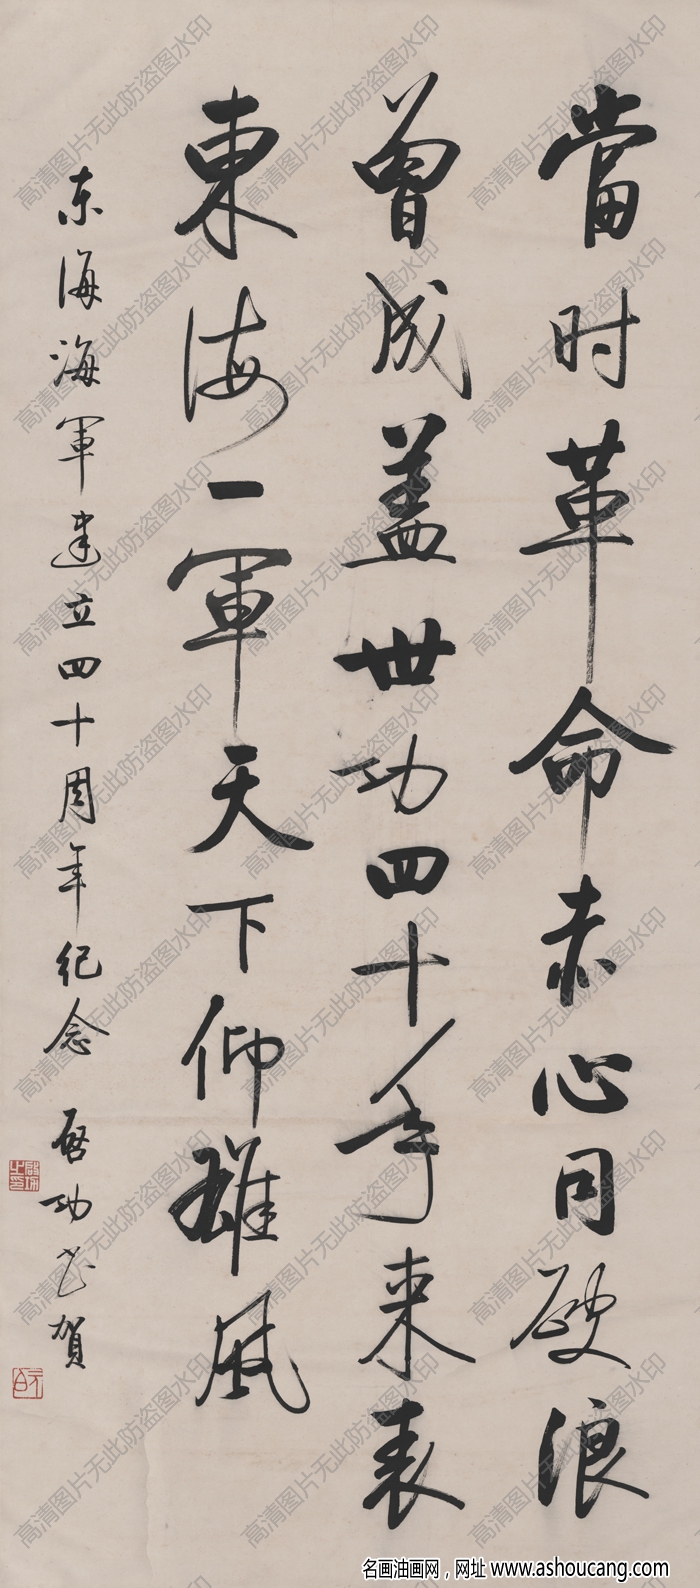 當时革命赤心同破浪
曾成盖世功四十年来表
東海一軍天下仰雄風
东海海軍建立四十周年纪念 启功 賀
啟功之印
元白
高清图片无此防盗图水印
名画油画网，网址 www.ashoucang.com